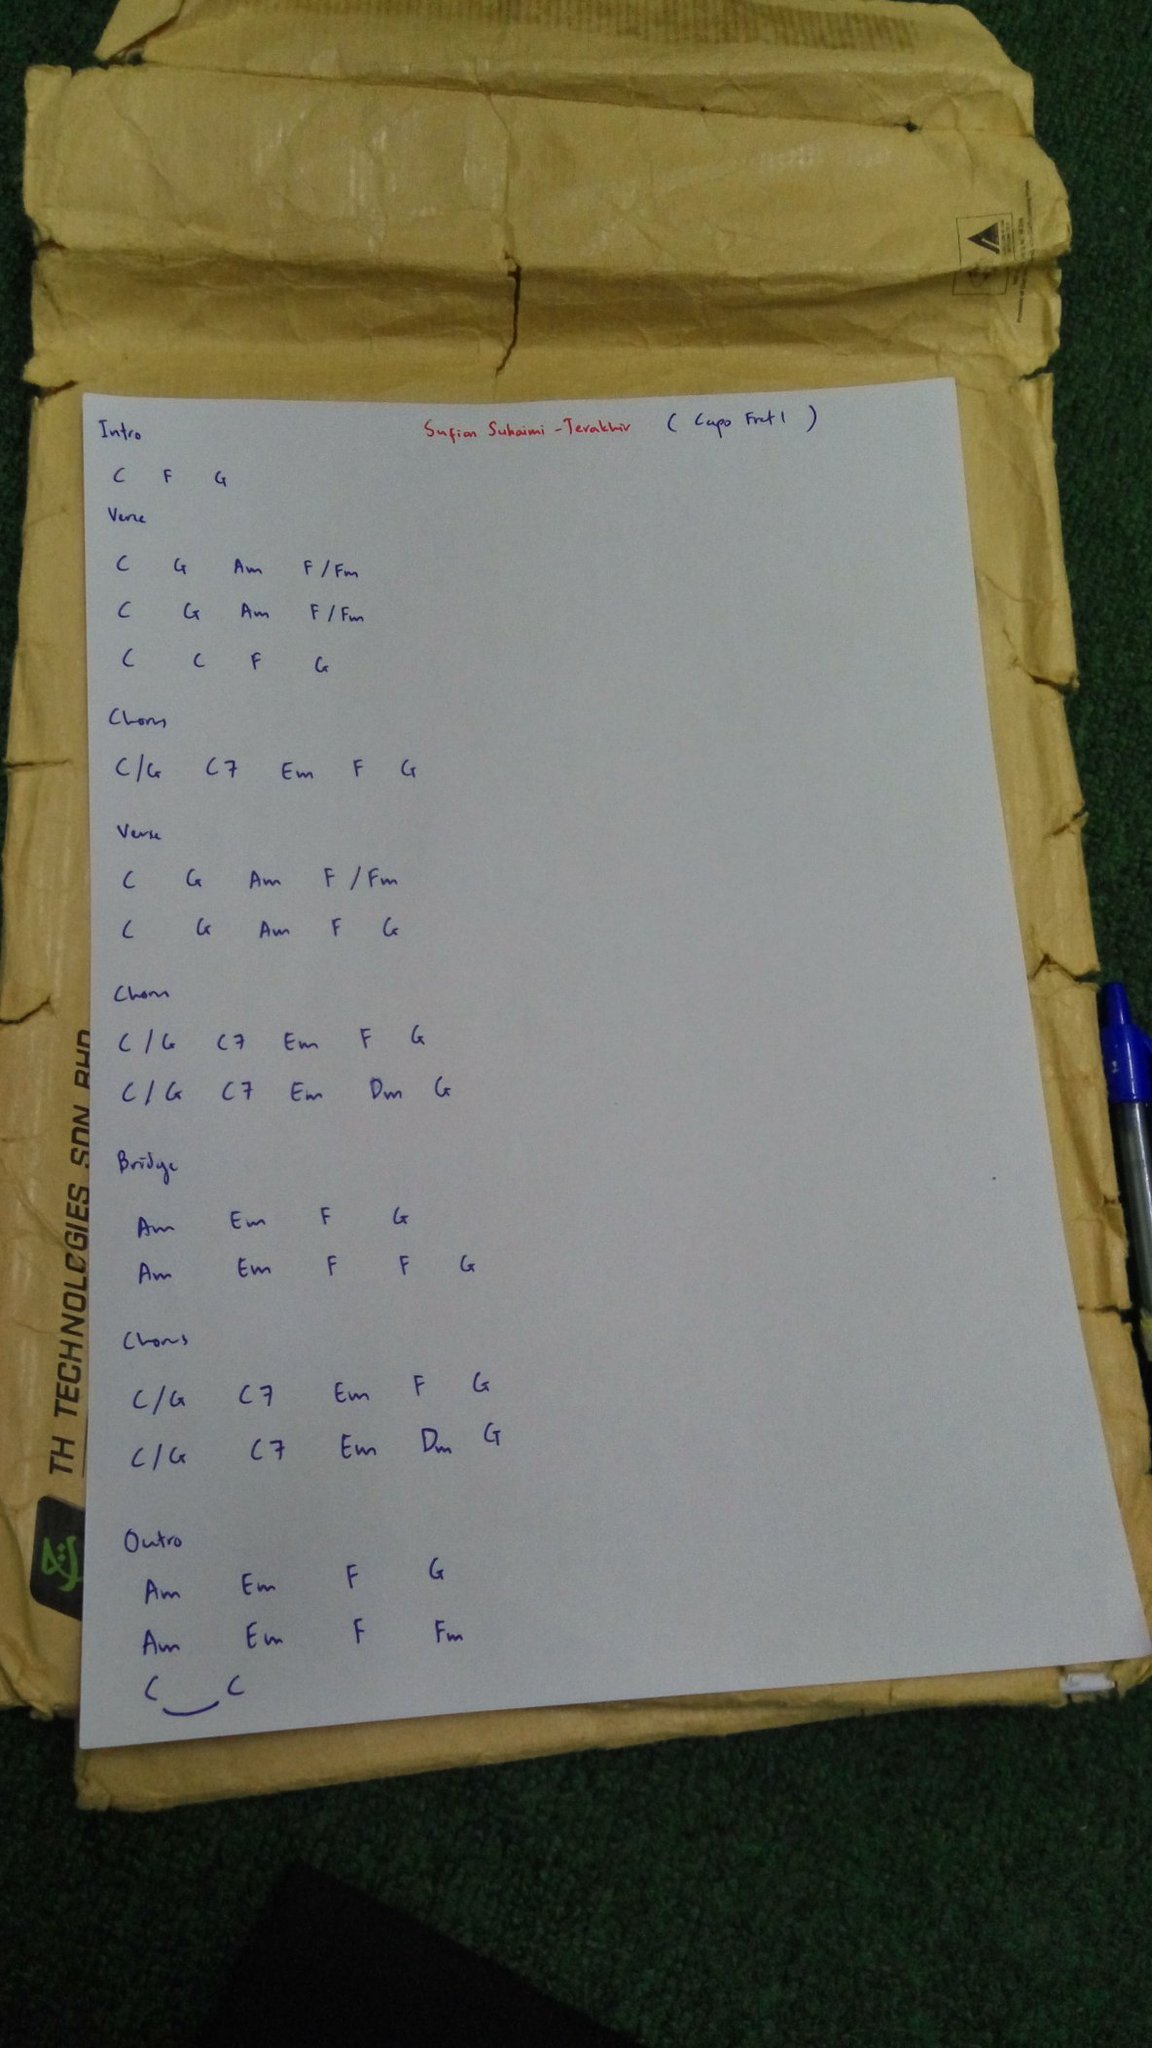 Intro
Sufian Suhaimi - Terakhir (Capo Fret 1)
C F G
Verse
C G Am F/Fm
C G Am F/Fm
C C F G
Chorus
C/G C7 Em F G
Verse
C G Am F/Fm
C G Am F G
Chorus
C/G C7 Em F G
C/G C7 Em Dm G
Bridge
Am Em F G
Am Em F F G
Chorus
C/G C7 Em F G
C/G C7 Em Dm G
Outro
Am Em F G
Am Em F Fm
C C
TH TECHNOLOGIES SDN BHD